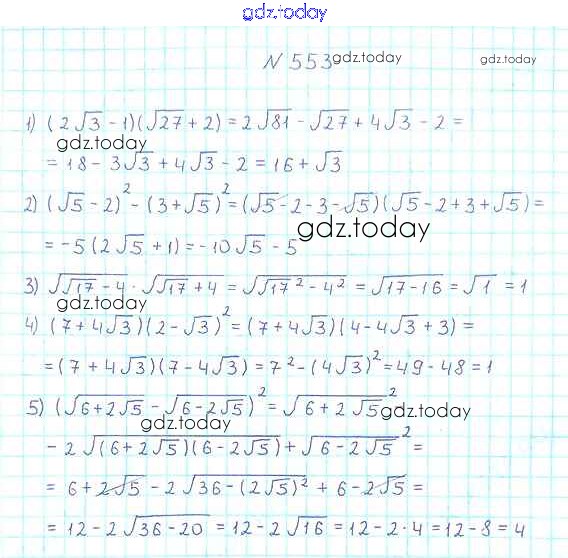 gdz.today
N 553 gdz.today gdz.today
1) (2√3 - 1)(√27 + 2) = 2√81 - √27 + 4√3 - 2 =
gdz.today
= 18 - 3√3 + 4√3 - 2 = 16 + √3
2) (√5 - 2)² - (3 + √5)² = (√5 - 2 - 3 - √5)(√5 - 2 + 3 + √5) =
gdz.today
= -5(2√5 + 1) = -10√5 - 5
3) √(√17 - 4) · √(√17 + 4) = √(√17² - 4²) = √(17 - 16) = √1 = 1
gdz.today
4) (7 + 4√3)(2 - √3)² = (7 + 4√3)(4 - 4√3 + 3) =
= (7 + 4√3)(7 - 4√3) = 7² - (4√3)² = 49 - 48 = 1
5) (√(6 + 2√5) - √(6 - 2√5))² = √(6 + 2√5)² gdz.today
gdz.today
- 2√((6 + 2√5)(6 - 2√5)) + √(6 - 2√5)² =
= 6 + 2√5 - 2√(36 - (2√5)²) + 6 - 2√5 =
= 12 - 2√(36 - 20) = 12 - 2√16 = 12 - 2·4 = 12 - 8 = 4